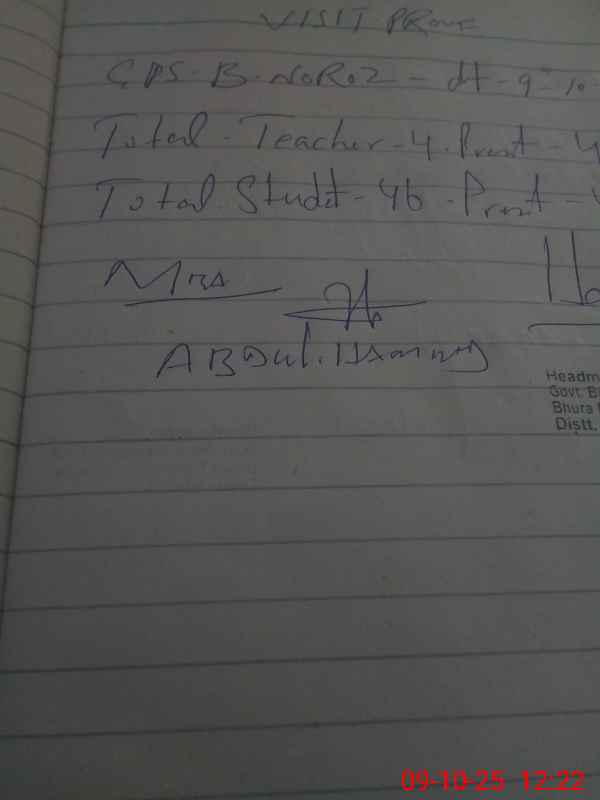 VISIT PROUF
GPS-B-NOROZ-dt-9-10-
Total-Teacher-4.Presnt-4
Total Studdt-46.Presnt-
Mrs
ABDul.
Headm
Govt. B
Bhura
Distt.
09-10-25 12:22